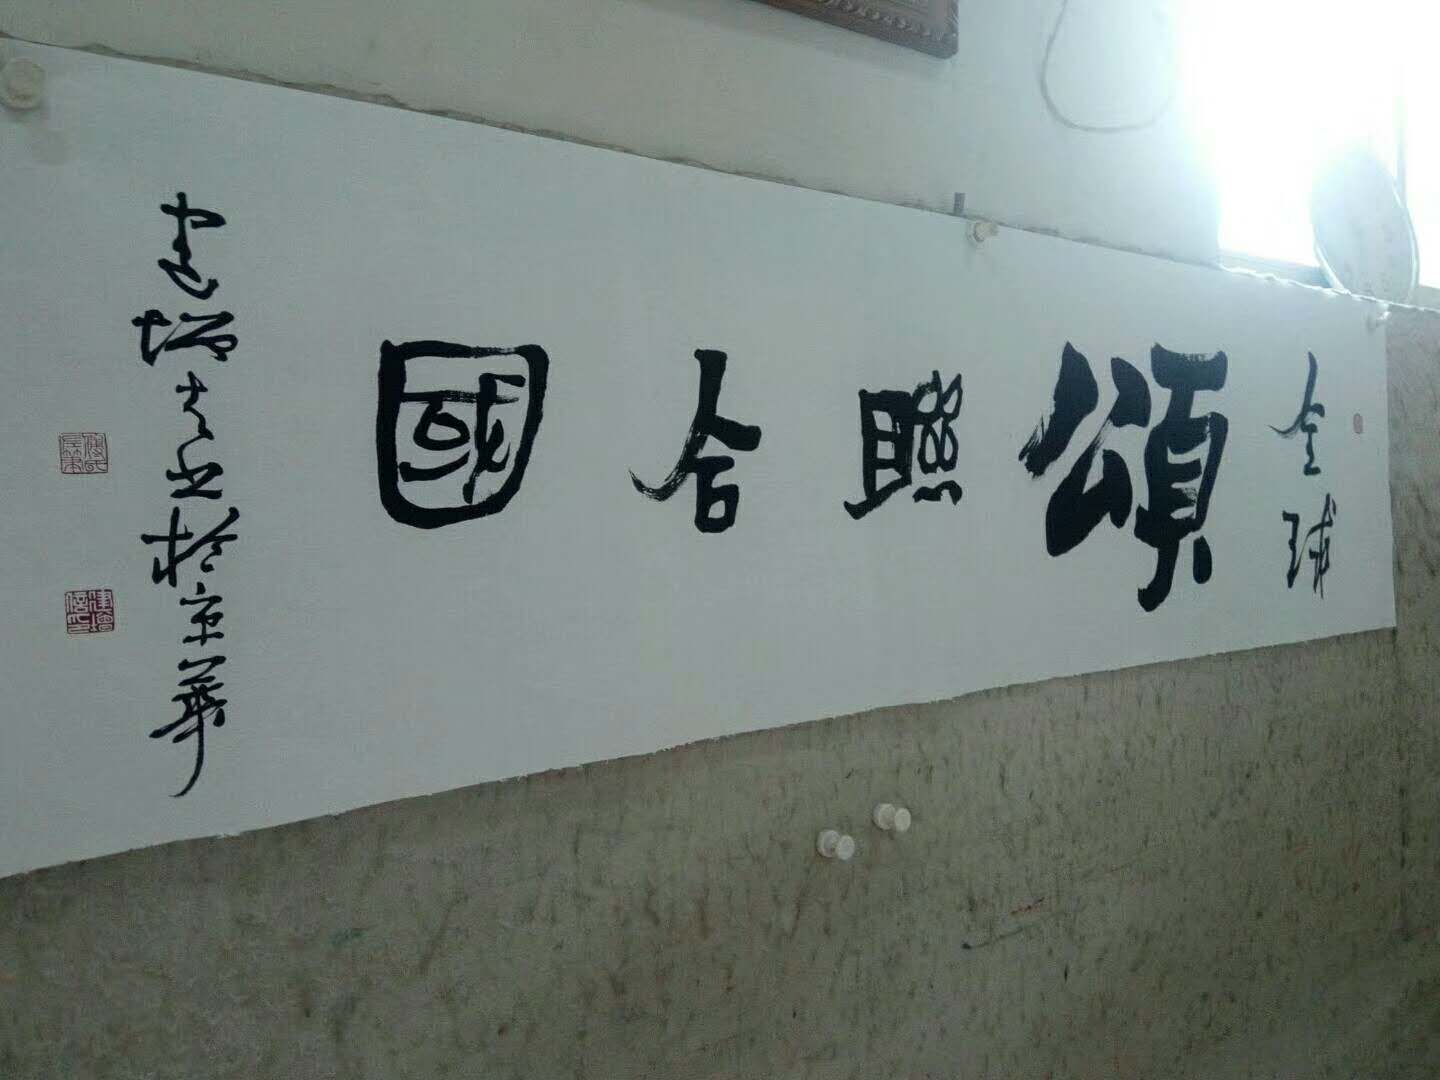 全球
頌聯合國
建增書於京華
建增